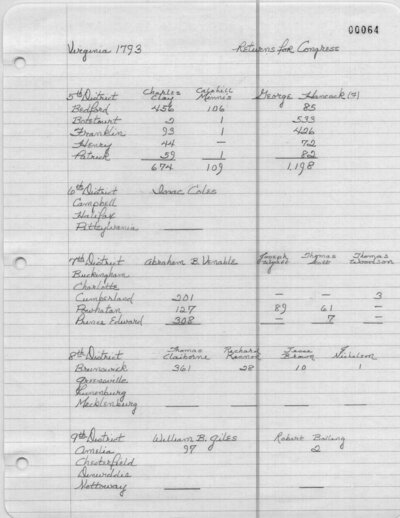 00064
Virginia 1793 Returns for Congress
5th District Charles Clay Calohill Minnis George Hancock (4)
Bedford 456 106 85
Botetourt 2 1 533
Franklin 93 1 426
Henry 44 — 72
Patrick 59 1 82
674 109 1,198
6th District Isaac Coles
Campbell
Halifax
Pittsylvania
7th District Abraham B. Venable Joseph Thomas Thomas Woodson
Buckingham
Charlotte
Cumberland 201 — — 3
Powhatan 127 89 61 —
Prince Edward 308 — 7 —
8th District Thomas Claiborne Richard Jesse Brown J Nicholson
Brunswick 361 28 10 1
Greensville
Lunenburg
Mecklenburg
9th District William B. Giles Robert Bolling
Amelia 97 2
Chesterfield
Dinwiddie
Nottoway